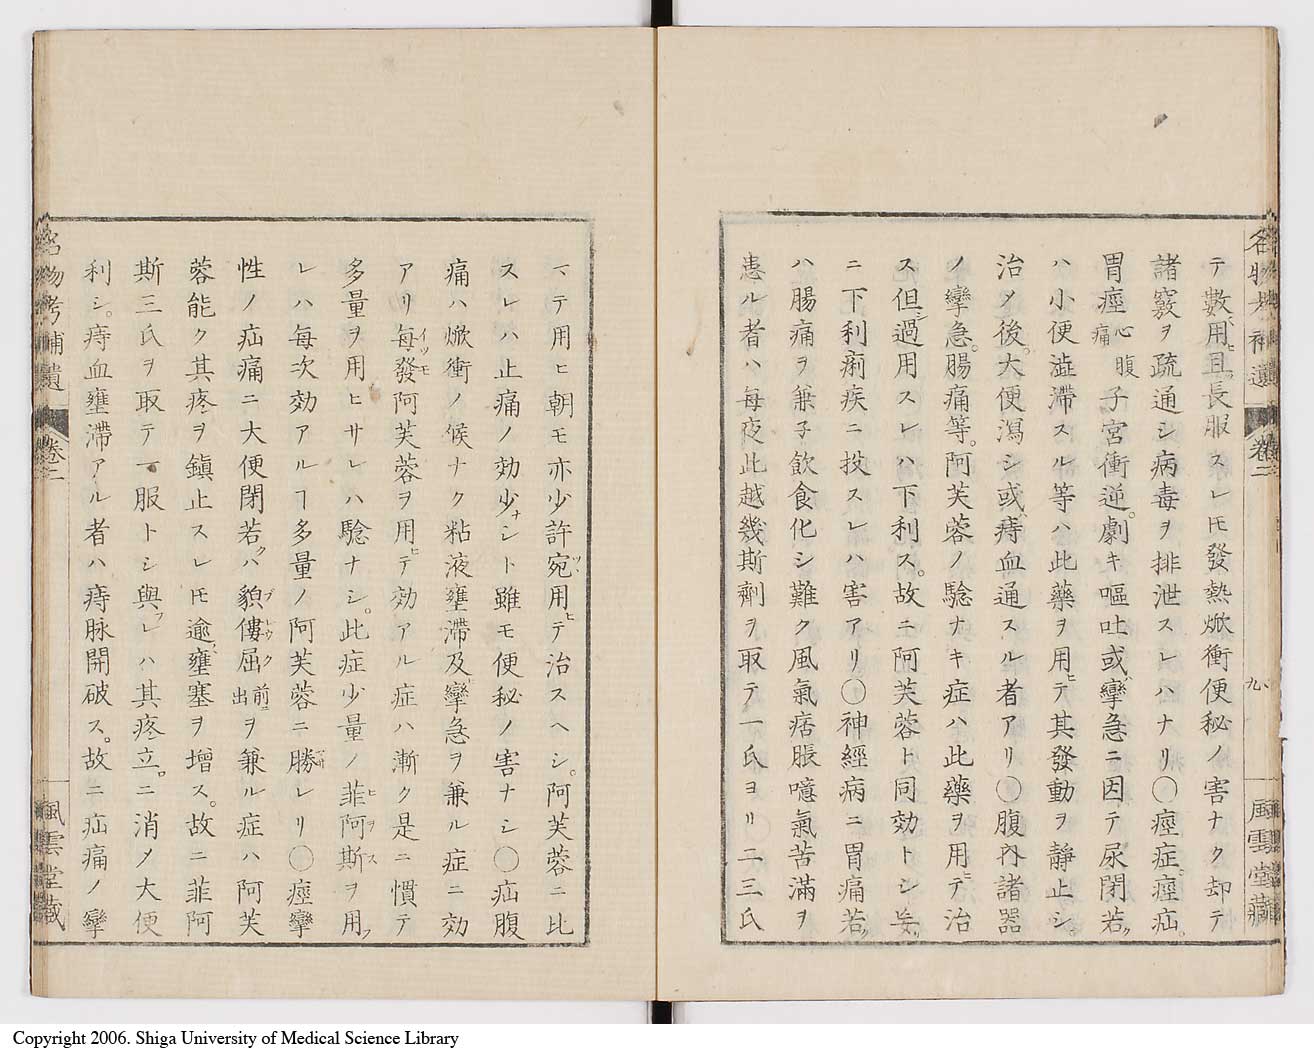 名物考補遺 卷二 九 風雲堂藏
テ數用ヒ且長服スレ𪜈發熱焮衝便秘ノ害ナク却テ
諸竅ヲ疏通シ病毒ヲ排泄スレハナリ〇痙症。痙疝。
胃痙心腹痛子宮衝逆。劇キ嘔吐或ハ攣急ニ因テ尿閉若ク
ハ小便澁滯スル等ハ此藥ヲ用ヒテ其發動ヲ靜止シ。
治メ後。大便瀉シ或ハ痔血通スル者アリ〇腹內諸器
ノ攣急。腸痛等。阿芙蓉ノ驗ナキ症ハ此藥ヲ用ヒテ治
ス但シ過用スレハ下利ス。故ニ阿芙蓉ト同効トシ妄リ
ニ下利痢疾ニ投スレハ害アリ〇神經病ニ胃痛若ク
ハ腸痛ヲ兼子飮食化シ難ク風氣痞脹噫氣苦滿ヲ
患ル者ハ每夜此越幾斯劑ヲ取テ一氏ヨリ二三氏
マテ用ヒ朝モ亦少許宛ツヽ用ヒテ治スヘシ。阿芙蓉ニ比
スレハ止痛ノ効少ナシト雖モ便秘ノ害ナシ〇疝腹
痛ハ焮衝ノ候ナク粘液壅滯及ヒ攣急ヲ兼ル症ニ効
アリ每發イツモ阿芙蓉ヲ用ヒテ効アル症ハ漸ク是ニ慣テ
多量ヲ用ヒサレハ驗ナシ。此症少量ノ菲阿斯ヒヲスヲ用フ
レハ每次効アルヿ多量ノ阿芙蓉ニ勝レリ〇痙攣
性ノ疝痛ニ大便閉若クハ貌僂屈ブトウク前ニ出ヲ兼ル症ハ阿芙
蓉能ク其疼ヲ鎭止スレ𪜈逾壅塞ヲ增ス。故ニ菲阿
斯三氏ヲ取テ一服トシ與フレハ其疼立。ニ消メ大便
利シ。痔血壅滯アル者ハ痔脉開破ス。故ニ疝痛ノ攣
名物考補遺 卷二 風雲堂藏
Copyright 2006. Shiga University of Medical Science Library